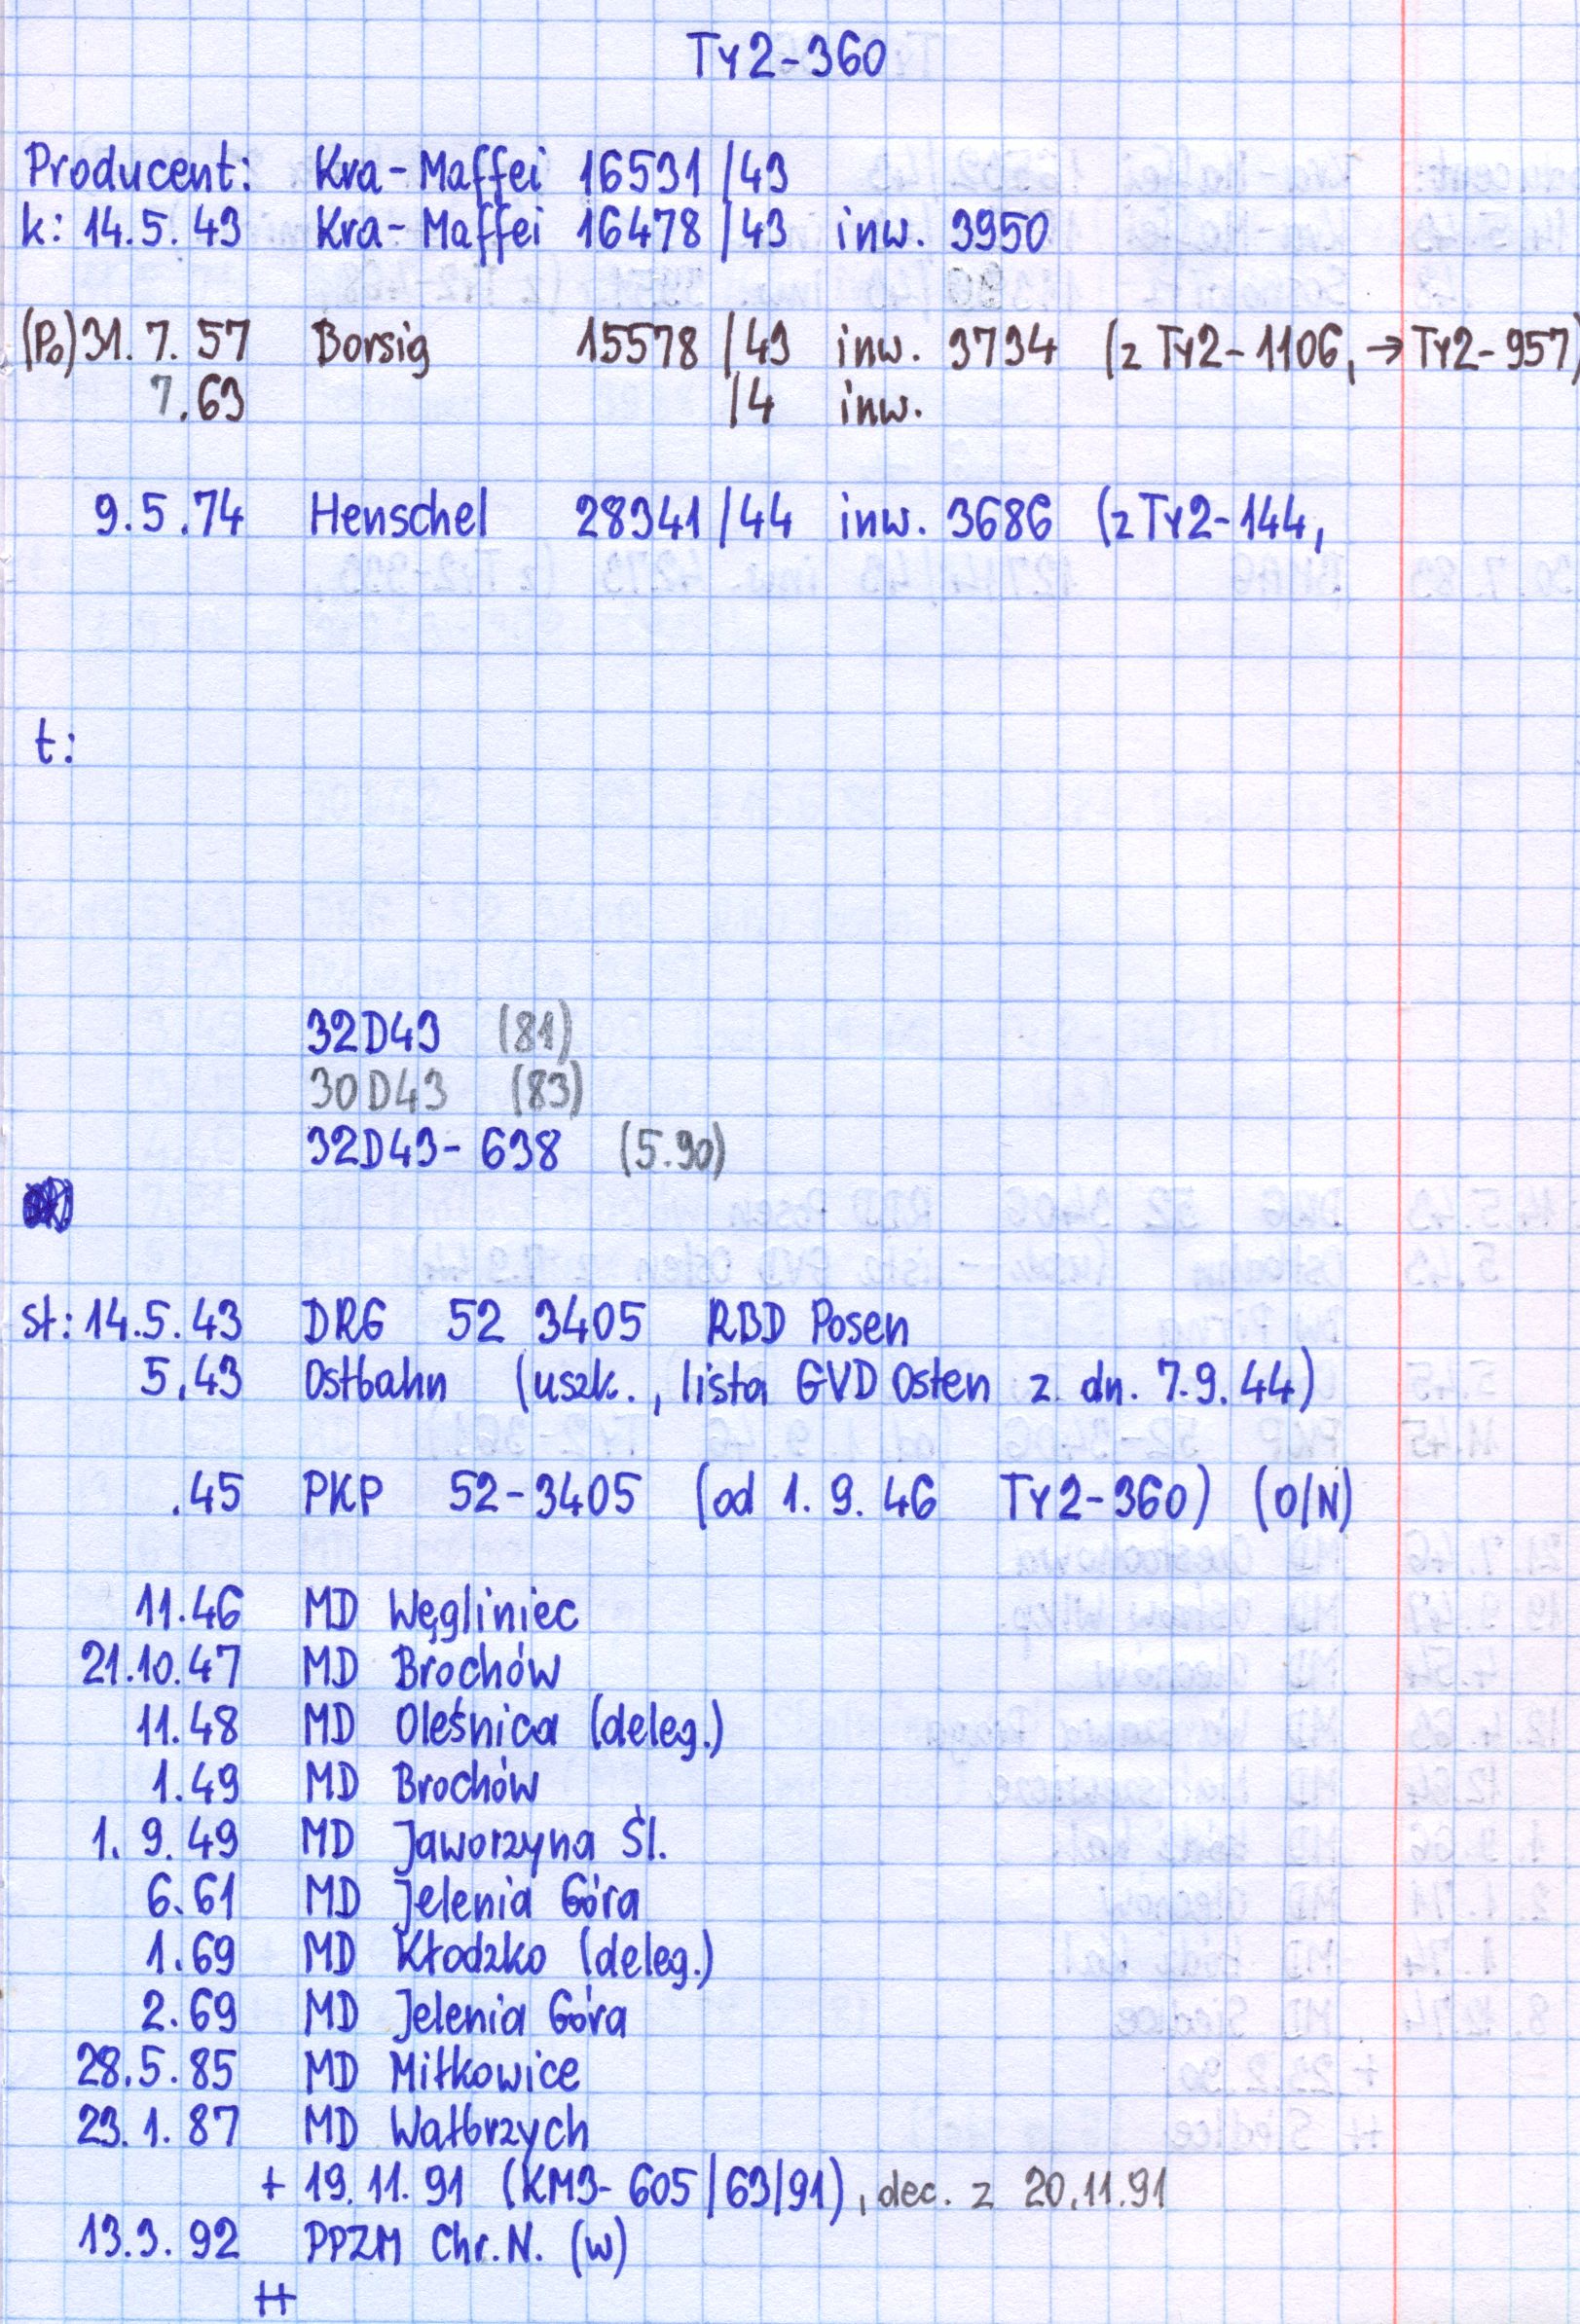 Ty2-360
Producent: Kra-Maffei 16531/43
k: 14.5.43 Kra-Maffei 16478/43 inw. 3950
(Po) 31.7.57 Borsig 15578/43 inw. 3734 (z Ty2-1106, → Ty2-957)
7.63 /4 inw.
9.5.74 Henschel 28341/44 inw. 3686 (z Ty2-144,
t:
32D43 (81)
30D43 (83)
32D43-638 (5.90)
st: 14.5.43 DRG 52 3405 RBD Posen
5.43 Ostbahn (uszk., lista GVD Osten z dn. 7.9.44)
.45 PKP 52-3405 (od 1.9.46 Ty2-360) (O/N)
11.46 MD Węgliniec
21.10.47 MD Brochów
11.48 MD Oleśnica (deleg.)
1.49 MD Brochów
1.9.49 MD Jaworzyna Śl.
6.61 MD Jelenia Góra
1.69 MD Kłodzko (deleg.)
2.69 MD Jelenia Góra
28.5.85 MD Miłkowice
23.1.87 MD Wałbrzych
+ 19.11.91 (KM3-605/63/91), dec. z 20.11.91
13.3.92 PPZM Chr.N. (w)
++